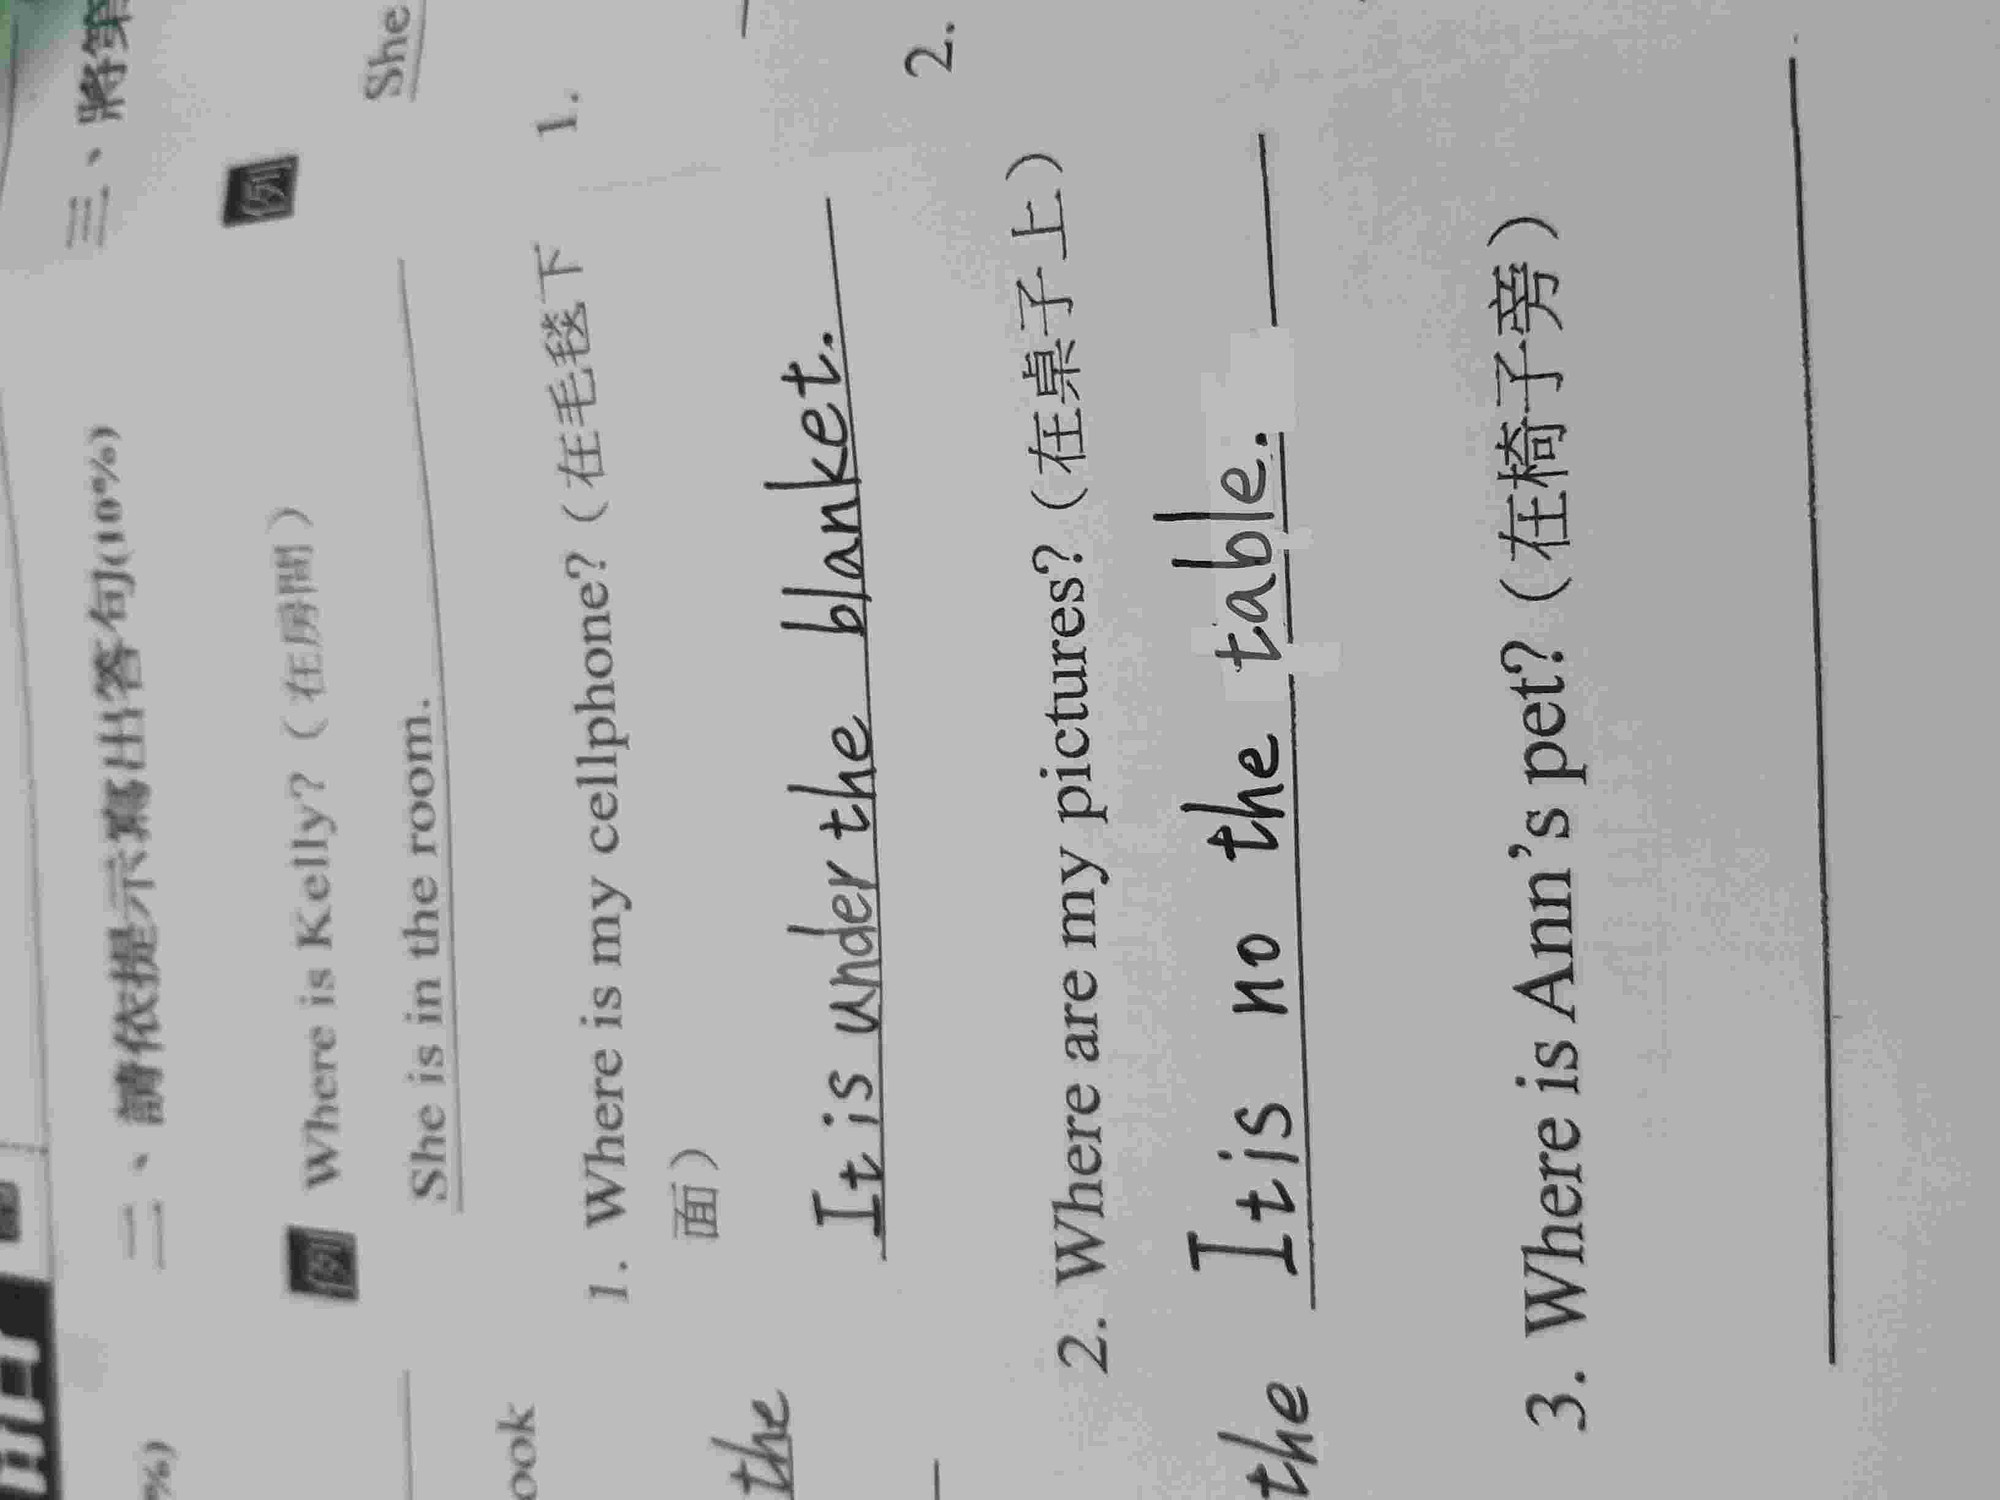 二、請依提示寫出答句(10%)
例 Where is Kelly?（在房間）
She is in the room.
1. Where is my cellphone?（在毛毯下
面）
It is under the blanket.
2. Where are my pictures?（在桌子上）
It is no the table.
3. Where is Ann's pet?（在椅子旁）
%)
ook
the
the
三、將第
例
She
1.
2.